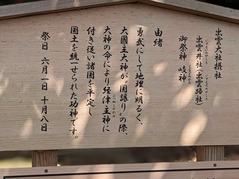 出雲大社摂社
出雲井社(出雲路社)
御祭神 岐神
由緒
勇武にして地理に明るく、
大國主大神が、国譲りの際、
大神の命により経津主神に
付き従い諸国を平定し
国土を統一せられた功神です。
祭日 六月一日 十月八日